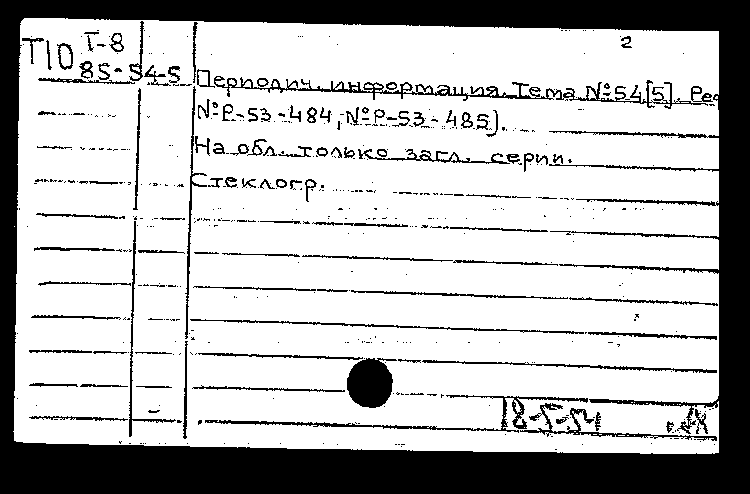 2
Т10 Т-8
85-54-5
Периодич. информация. Тема №54[5]. Реф
№Р-53-484, №Р-53-485].
На обл. только загл. серии.
Стеклогр.
18-5-54